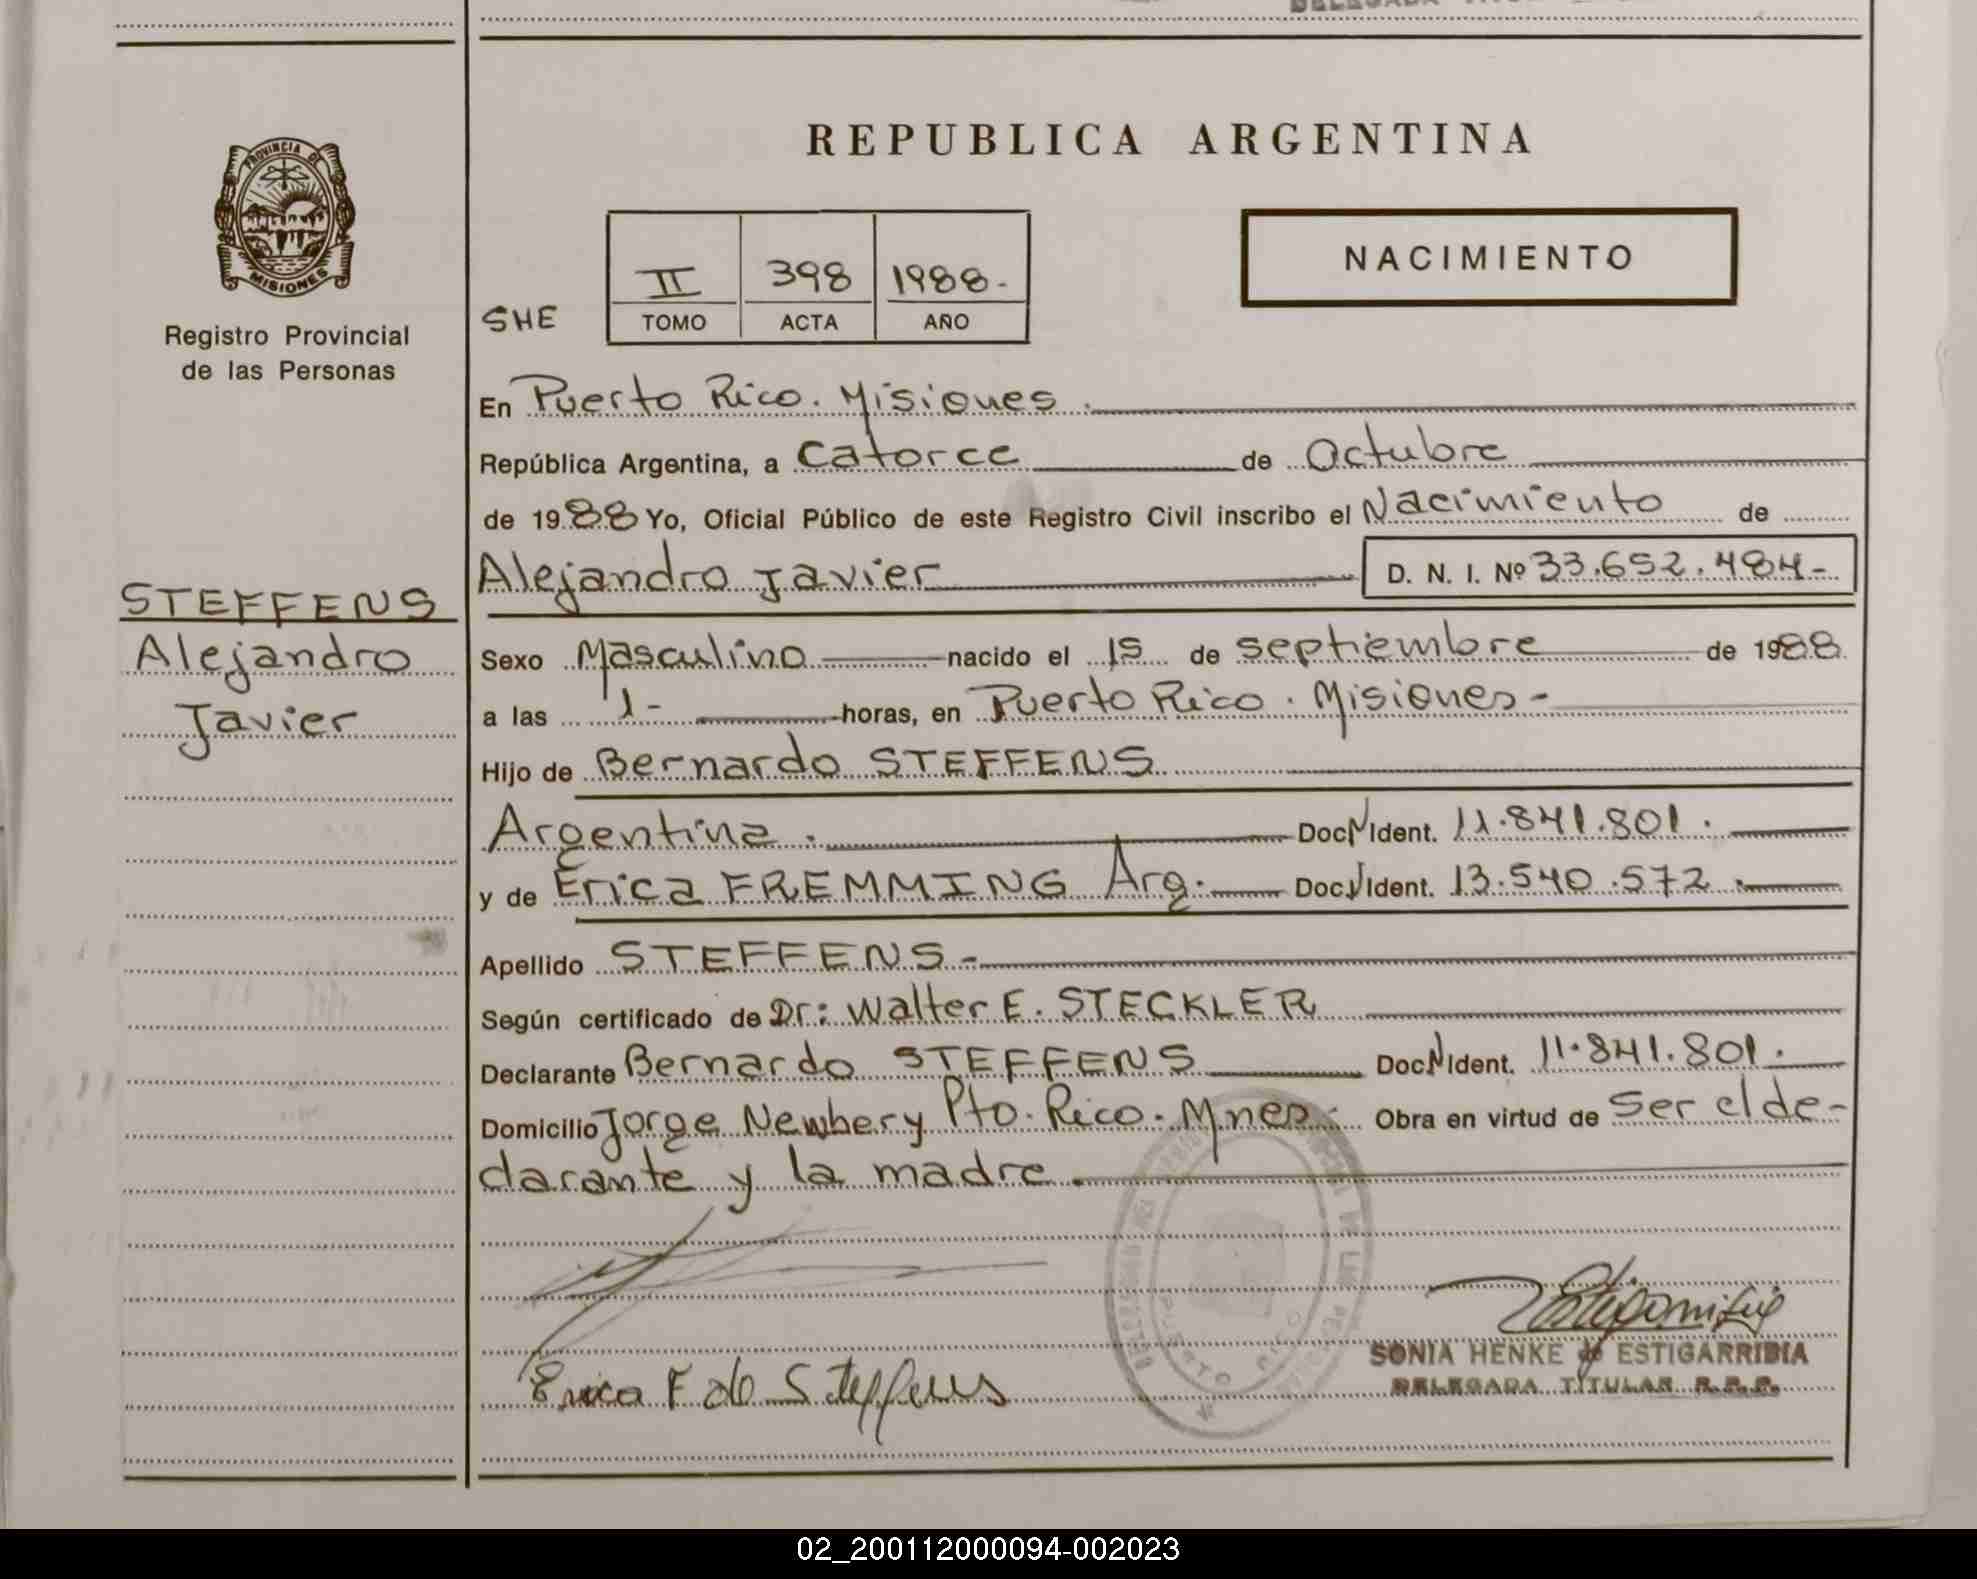 REPUBLICA ARGENTINA
PROVINCIA DE
MISIONES
Registro Provincial
de las Personas
NACIMIENTO
SHE
II 398 1988.-
TOMO ACTA AÑO
En Puerto Rico. Misiones.
República Argentina, a Catorce de Octubre
de 1988 Yo, Oficial Público de este Registro Civil inscribo el Nacimiento de
Alejandro Javier D. N. I. Nº 33.652.484-
STEFFENS
Alejandro
Javier
Sexo Masculino nacido el 15 de septiembre de 1988
a las 1- horas, en Puerto Rico. Misiones-
Hijo de Bernardo STEFFENS
Argentina. Doc. N Ident. 11.841.801.
y de Erica FREMMING Arg. Doc. N Ident. 13.540.572.
Apellido STEFFENS-
Según certificado de Dr: Walter E. STECKLER
Declarante Bernardo STEFFENS Doc. N Ident. 11.841.801.
Domicilio Jorge Newbery Pto. Rico. Mnes. Obra en virtud de Ser el de-
clarante y la madre.
Erica F. de Steffens
SONIA HENKE de ESTIGARRIBIA
DELEGADA TITULAR R.P.P.
02_200112000094-002023